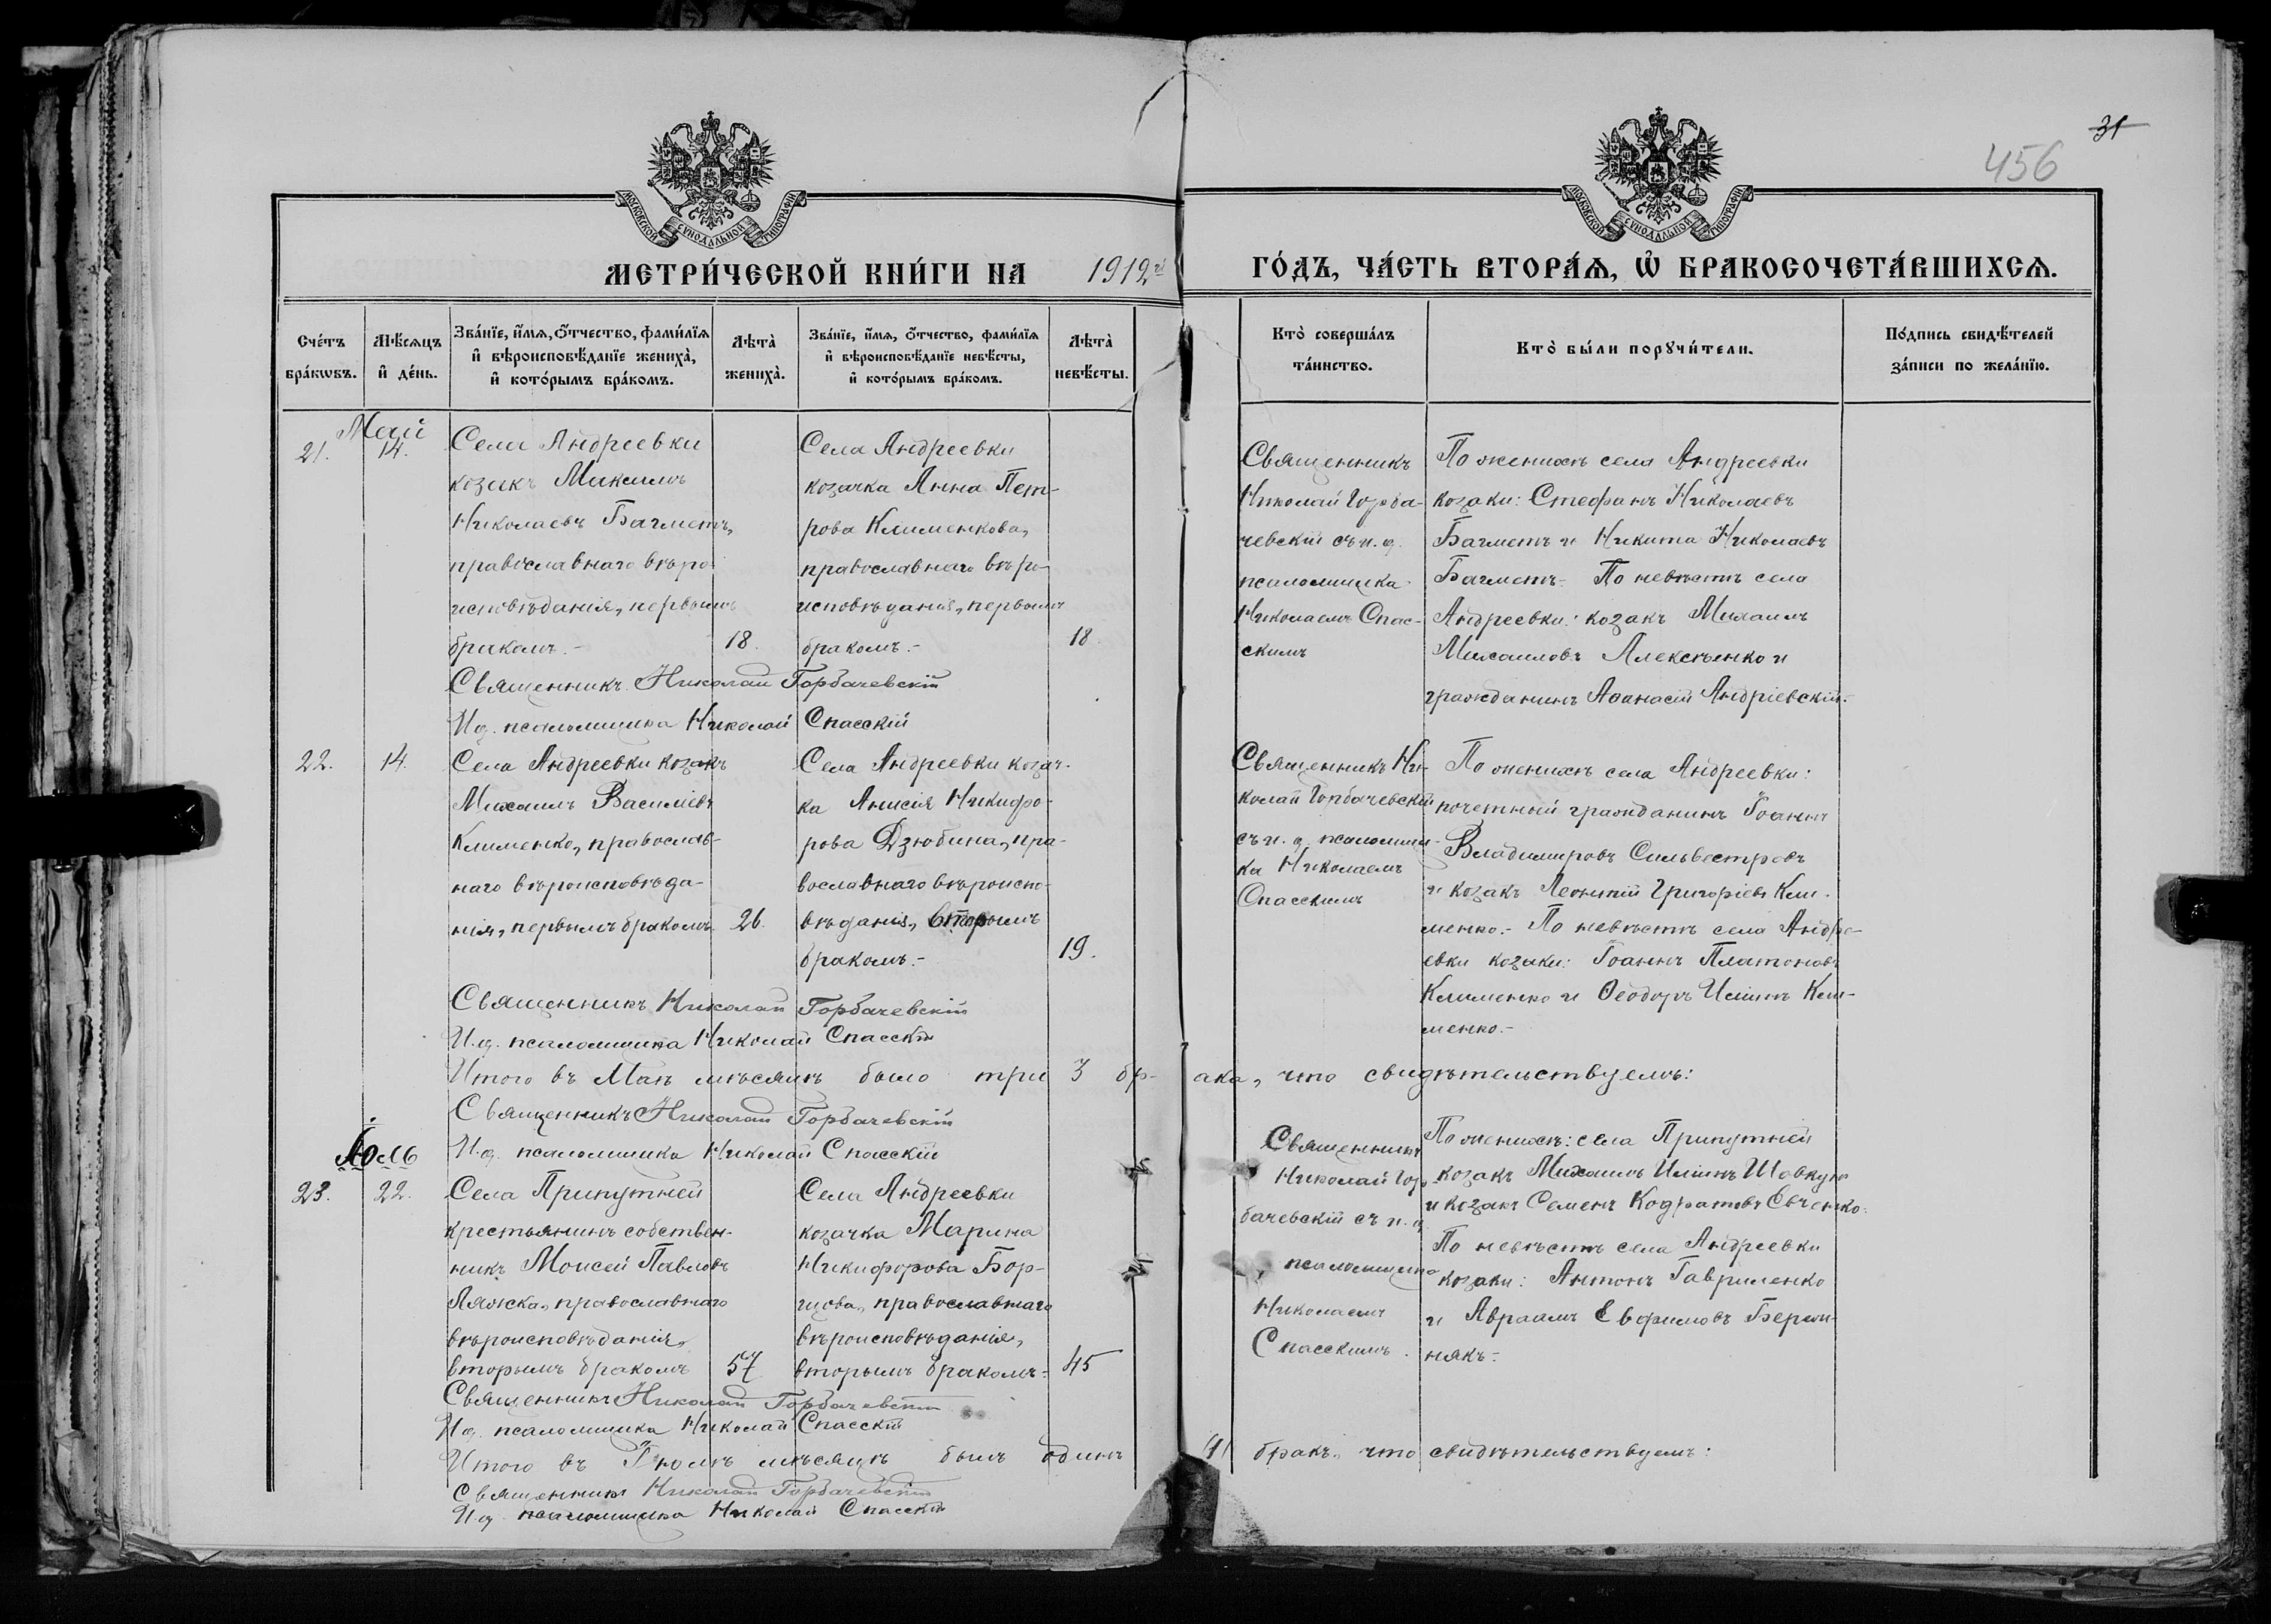 31
456
МОСКОВСКОЙ СѴНОДАЛЬНОЙ ТИПОГРАФІИ
МОСКОВСКОЙ СѴНОДАЛЬНОЙ ТИПОГРАФІИ
МЕТРИ́ЧЕСКОЙ КНИ́ГИ НА 1912й ГО́ДЪ, ЧА́СТЬ ВТОРА́Ѧ, Ѽ БРАКОСОЧЕТА́ВШИХСѦ.
Сче́тъ бра́кѡвъ.
Мѣ́сѧцъ и҆ де́нь.
Зва́нїе, и҆́мѧ, ѻ҆́тчество, фами́лїѧ
и҆ вѣроисповѣ́данїе жениха̀,
и҆ кото́рымъ бра́комъ.
Лѣта̀ жениха̀.
Зва́нїе, и҆́мѧ, ѻ҆́тчество, фами́лїѧ
и҆ вѣроисповѣ́данїе невѣ́сты,
и҆ кото́рымъ бра́комъ.
Лѣта̀ невѣ́сты.
Кто̀ соверша́лъ
та́инство.
Кто̀ бы́ли порꙋчи́тели.
По́дпись свидѣ́телей
за́писи по жела́нїю.
Май
21.
14.
Села Андреевки
козакъ Максимъ
Николаевъ Багметъ,
православнаго веро-
исповѣданія, первымъ
бракомъ.-
18.
Села Андреевки
козачка Анна Пет-
рова Клименкова,
православнаго вѣро-
исповѣданія, первымъ
бракомъ.-
18
Священникъ
Николай Горба-
чевскій съ и. д.
псаломщика
Николаемъ Спас-
скимъ
По женихѣ села Андреевки
козаки: Стефанъ Николаевъ
Багметъ и Никита Николаевъ
Багметъ- По невѣстѣ села
Андреевки: козакъ Михаилъ
Михаиловъ Алексѣенко и
гражданинъ Аѳанасій Андріевскій.-
Священникъ Николай Горбачевскій
И д. псаломщика Николай Спасскій
22.
14.
Села Андреевки козакъ
Михаилъ Василіевъ
Клименко, православ-
наго вѣроисповѣда-
нія, первымъ бракомъ.
26.
Села Андреевки козач-
ка Анисія Никифо-
рова Дзюбина, пра-
вославнаго вѣроиспо-
вѣданія, вторымъ
бракомъ.-
19.
Священникъ Ни-
колай Горбачевскій
съ и. д. псаломщи-
ка Николаемъ
Спасскимъ
По женихѣ села Андреевки:
почетный гражданинъ Іоаннъ
Владимировъ Сильвестровъ
и козакъ Леонтій Григоріевъ Кли-
менко.- По невѣстѣ села Андре-
евки козаки: Іоаннъ Платоновъ
Клименко и Ѳеодоръ Иліинъ Кли-
менко.-
Священникъ Николай Горбачевскій
И.д. псаломщика Николай Спасскій
Итого въ Маѣ мѣсяцѣ было три 3 брака, что свидѣтельствуемъ:
Священникъ Николай Горбачевскій
И.д. псаломщика Николай Спасскій
23.
22.
Села Припутней
крестьянинъ собствен-
никъ Моисей Павловъ
Ляжка, православнаго
вѣроисповѣданія,
вторымъ бракомъ
57
Села Андреевки
козачка Марина
Никифорова Бор-
щова, православнаго
вѣроисповѣданія,
вторымъ бракомъ-
45
Священникъ
Николай Гор-
бачевскій съ и. д.
псаломщика
Николаемъ
Спасскимъ.
По женихѣ: села Припутней
козакъ Михаилъ Иліинъ Шовкун
и козакъ Семенъ Кодратовъ
По невѣстѣ села Андреевки
козаки: Антонъ Гавриленко
и Авраамъ Евфимовъ
някъ.-
Священникъ Николай Горбачевскій
И д. псаломщика Николай Спасскій
Итого въ Іюлѣ мѣсяцѣ былъ одинъ /1/ бракъ, что свидѣтельствуемъ:
Священникъ Николай Горбачевскій
И д. псаломщика Николай Спасскій